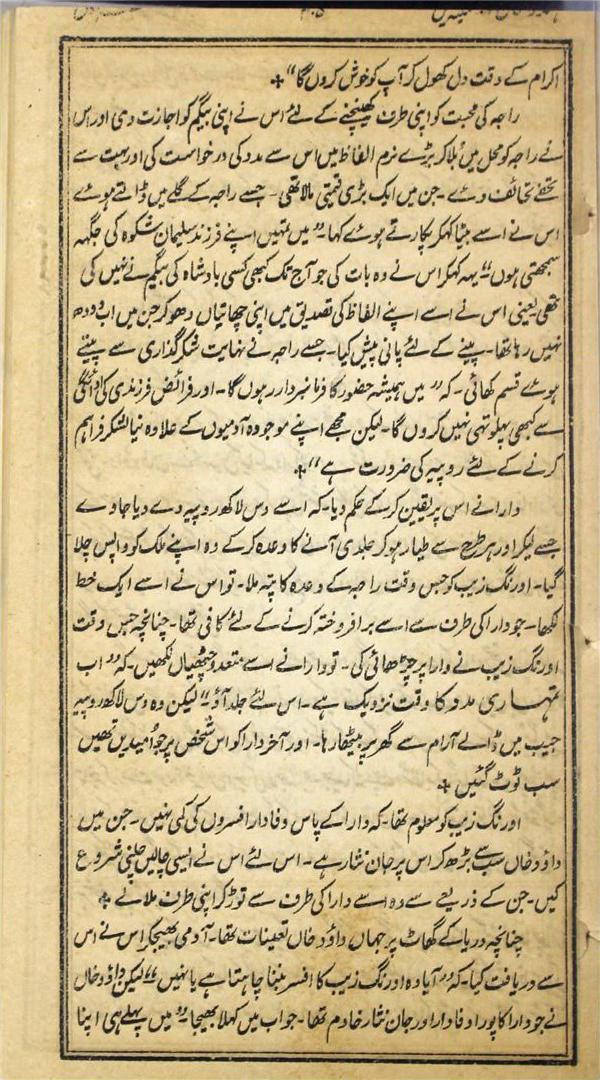 اکرام کے وقت دل کھول کر آپ کو خوش کروں گا"
راجہ کی محبت کو اپنی طرف کھینچنے کے لئے اس نے اپنی بیگم کو اجازت دی اور اس
نے راجہ کو محل میں بلا کر بڑے نرم الفاظ میں اس سے مدد کی درخواست کی اور بہت سے
تحفے تحائف دئے۔ جن میں ایک بڑی قیمتی مالا تھی۔ جسے راجہ کے گلے میں ڈالتے ہوئے
اس نے اسے بیٹا کہکر پکارتے ہوئے کہا۔ "میں تمہیں اپنے فرزند سلیمان شکوہ کی جگہہ
سمجھتی ہوں" یہہ کہکر اس نے وہ بات کی جو آج تک کبھی کسی بادشاہ کی بیگم نے نہیں کی
تھی یعنی اس نے اسے اپنے الفاظ کی تصدیق میں اپنی چھاتیاں دھو کر جن میں اب دودھ
نہیں رہا تھا۔ پینے کے لئے پانی پیش کیا۔ جسے راجہ نے نہایت شکرگذاری سے پیتے
ہوئے قسم کھائی۔ کہ "میں ہمیشہ حضور کا فرمانبردار رہوں گا۔ اور فرائض فرزندی کی ادائگی
سے کبھی پہلو تہی نہیں کروں گا۔ لیکن مجھے اپنے موجودہ آدمیوں کے علاوہ نیا لشکر فراہم
کرنے کے لئے روپیہ کی ضرورت ہے"
دارا نے اس پر یقین کرکے حکم دیا۔ کہ اسے دس لاکھ روپیہ دے دیا جاوے
جسے لیکر اور ہر طرح سے طیار ہو کر جلدی آنے کا وعدہ کرکے وہ اپنے ملک کو واپس چلا
گیا۔ اورنگ زیب کو جس وقت راجہ کے وعدہ کا پتہ ملا۔ تو اس نے اسے ایک خط
لکھا۔ جو دارا کی طرف سے اسے برافروختہ کرنے کے لئے کافی تھا۔ چنانچہ جس وقت
اورنگ زیب نے دارا پر چڑھائی کی۔ تو دارا نے اسے متعدد چٹھیاں لکھیں۔ کہ "اب
تمہاری مدد کا وقت نزدیک ہے۔ اس لئے جلد آؤ" لیکن وہ دس لاکھ روپیہ
جیب میں ڈالے آرام سے گھر پر بیٹھا رہا۔ اور آخر دارا کو اس شخص پر جو امیدیں تھیں
سب ٹوٹ گئیں
اورنگ زیب کو معلوم تھا۔ کہ دارا کے پاس وفادار افسروں کی کمی نہیں۔ جن میں
داؤد خاں سب سے بڑھ کر اس پر جان نثار ہے۔ اس لئے اس نے ایسی چالیں چلنی شروع
کیں۔ جن کے ذریعے سے وہ اسے دارا کی طرف سے توڑ کر اپنی طرف ملالے
چنانچہ دریا کے گھاٹ پر جہاں داؤد خاں تعینات تھا۔ آدمی بھیجکر اس نے اس
سے دریافت کیا۔ کہ "آیا وہ اورنگ زیب کا افسر بننا چاہتا ہے یا نہیں" لیکن داؤد خاں
نے جو دارا کا پورا وفادار اور جان نثار خادم تھا۔ جواب میں کہلا بھیجا۔ "میں پہلے ہی اپنا